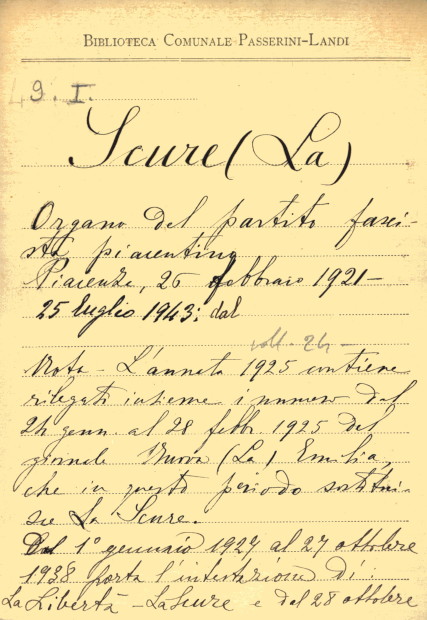 BIBLIOTECA COMUNALE PASSERINI-LANDI
9. I.
Scure (La)
Organo del partito fasci-
sta piacentino
Piacenza, 26 febbraio 1921-
25 luglio 1943; dal
voll. 24-
Nota - L'annata 1925 contiene
rilegati insieme i numeri dal
24 genn. al 28 febbr 1925 del
giornale Nuova (La) Emilia,
che in questo periodo sostitui-
sce La Scure.
Dal 1° gennaio 1927 al 27 ottobre
1938 porta l'intestazione di:
La Libertà - La Scure e dal 28 ottobre